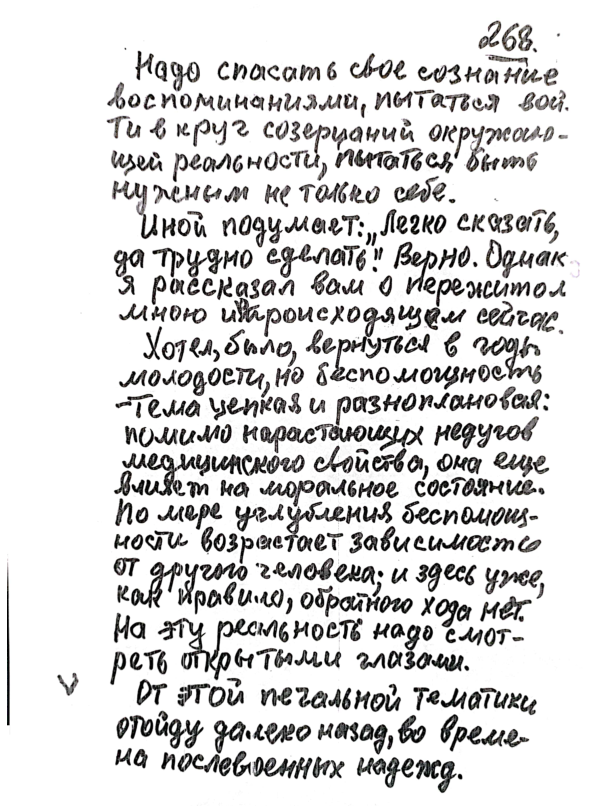 268.
Надо спасать свое сознание
воспоминаниями, пытаться вой-
ти в круг созерцаний окружаю-
щей реальности, пытаться быть
нужным не только себе.
Иной подумает: „Легко сказать,
да трудно сделать!" Верно. Однако
я рассказал вам о пережитом
мною и происходящем сейчас.
Хотел, было, вернуться в годы
молодости, но беспомощность
-тема цепкая и разноплановая:
помимо нарастающих недугов
медицинского свойства, она еще
влияет на моральное состояние.
По мере углубления беспомощ-
ности возрастает зависимость
от другого человека; и здесь уже,
как правило, обратного хода нет.
На эту реальность надо смот-
реть открытыми глазами.
V От этой печальной тематики
отойду далеко назад, во време-
на послевоенных надежд.